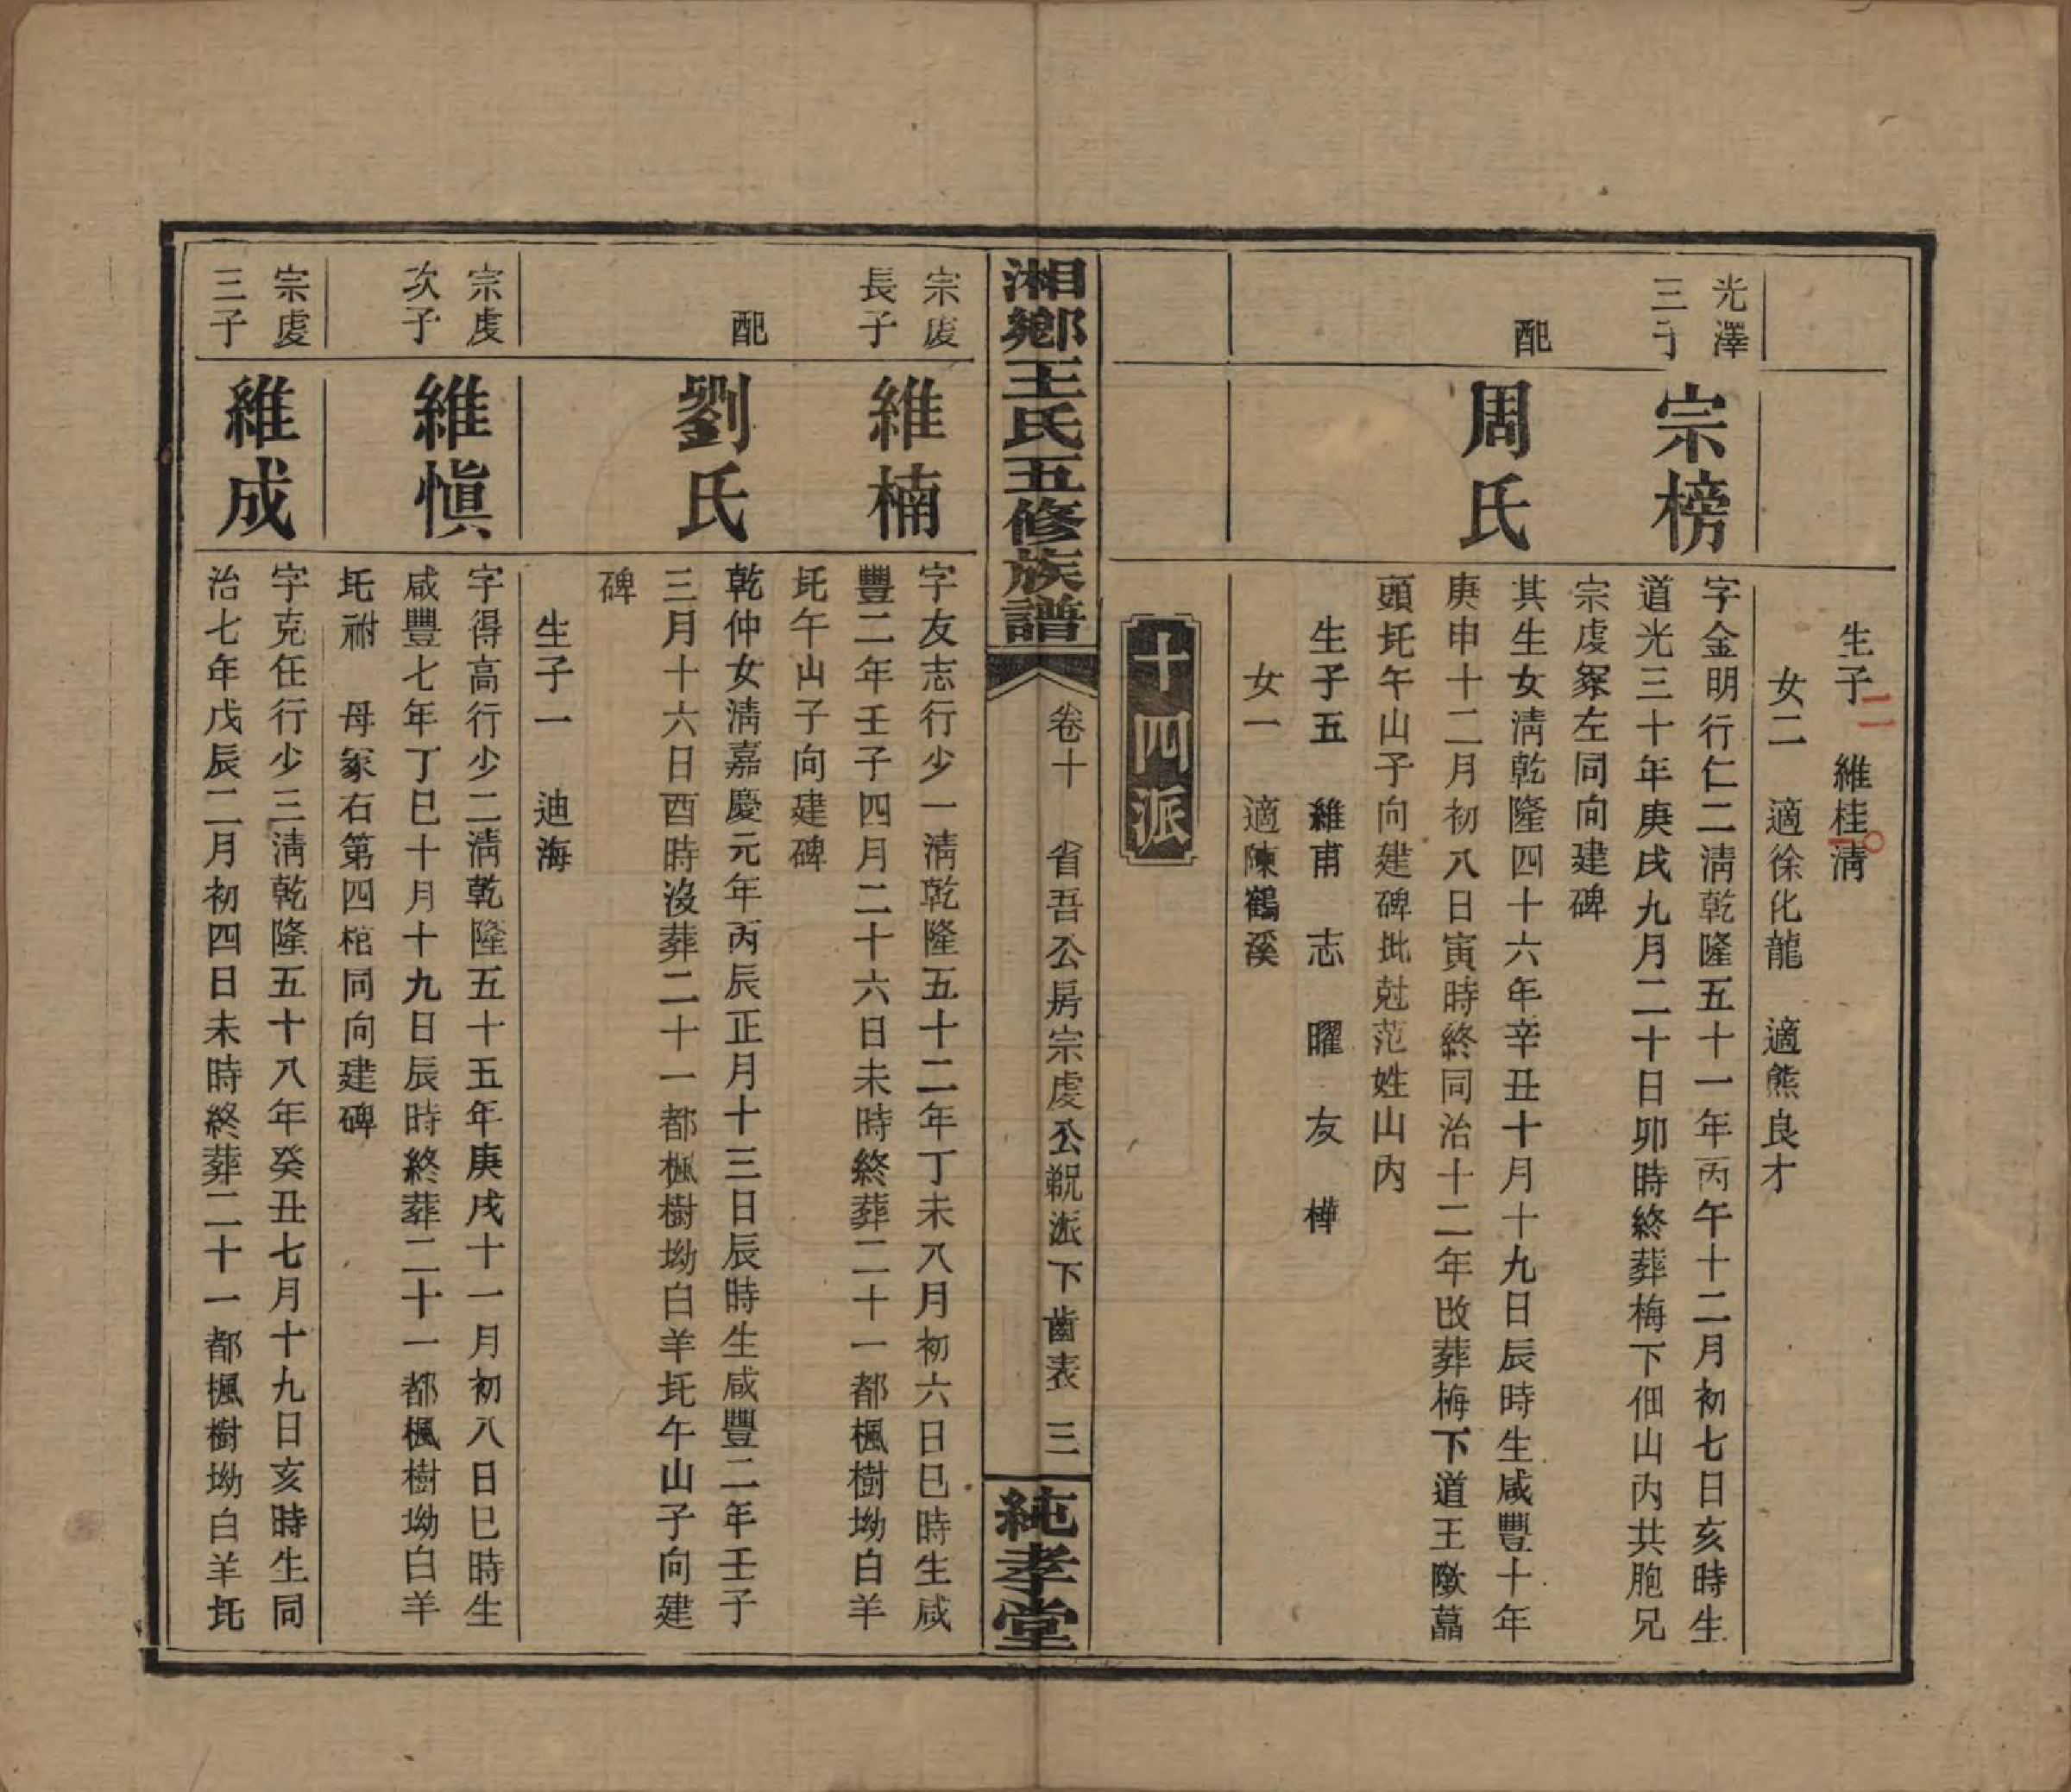 生子二　維桂　清
女二　適徐化龍　適熊良才
光澤
三子
宗榜
字金明行仁二清乾隆五十一年丙午十二月初七日亥時生
道光三十年庚戌九月二十日卯時終葬梅下佃山內共胞兄
宗虔冢左同向建碑
配
周氏
其生女清乾隆四十六年辛丑十月十九日辰時生咸豐十年
庚申十二月初八日寅時終同治十二年改葬梅下道王墩藠
頭圫午山子向建碑批尅范姓山內
生子五　維甫　志　曜　友　樺
女一　適陳鶴溪
十四派
湘鄉王氏五修族譜
卷十　省吾公房宗虔公覜派下齒表　三
純孝堂
宗虔
長子
維楠
字友志行少一清乾隆五十二年丁未八月初六日巳時生咸
豐二年壬子四月二十六日未時終葬二十一都楓樹坳白羊
圫午山子向建碑
配
劉氏
乾仲女清嘉慶元年丙辰正月十三日辰時生咸豐二年壬子
三月十六日酉時沒葬二十一都楓樹坳白羊圫午山子向建
碑
生子一　迪海
宗虔
次子
維愼
字得高行少二清乾隆五十五年庚戌十一月初八日巳時生
咸豐七年丁巳十月十九日辰時終葬二十一都楓樹坳白羊
圫祔　母冢右第四棺同向建碑
宗虔
三子
維成
字克任行少三清乾隆五十八年癸丑七月十九日亥時生同
治七年戊辰二月初四日未時終葬二十一都楓樹坳白羊圫